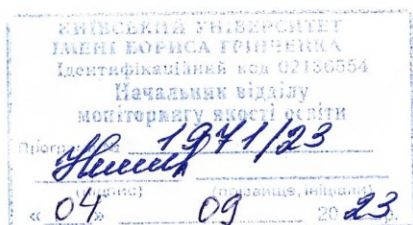 КИЇВСЬКИЙ УНІВЕРСИТЕТ
ІМЕНІ БОРИСА ГРІНЧЕНКА
Ідентифікаційний код 02136554
Начальник відділу
моніторингу якості освіти
Програма 1971/23
(підпис) (прізвище, ініціали)
« 04 » 09 2023 р.